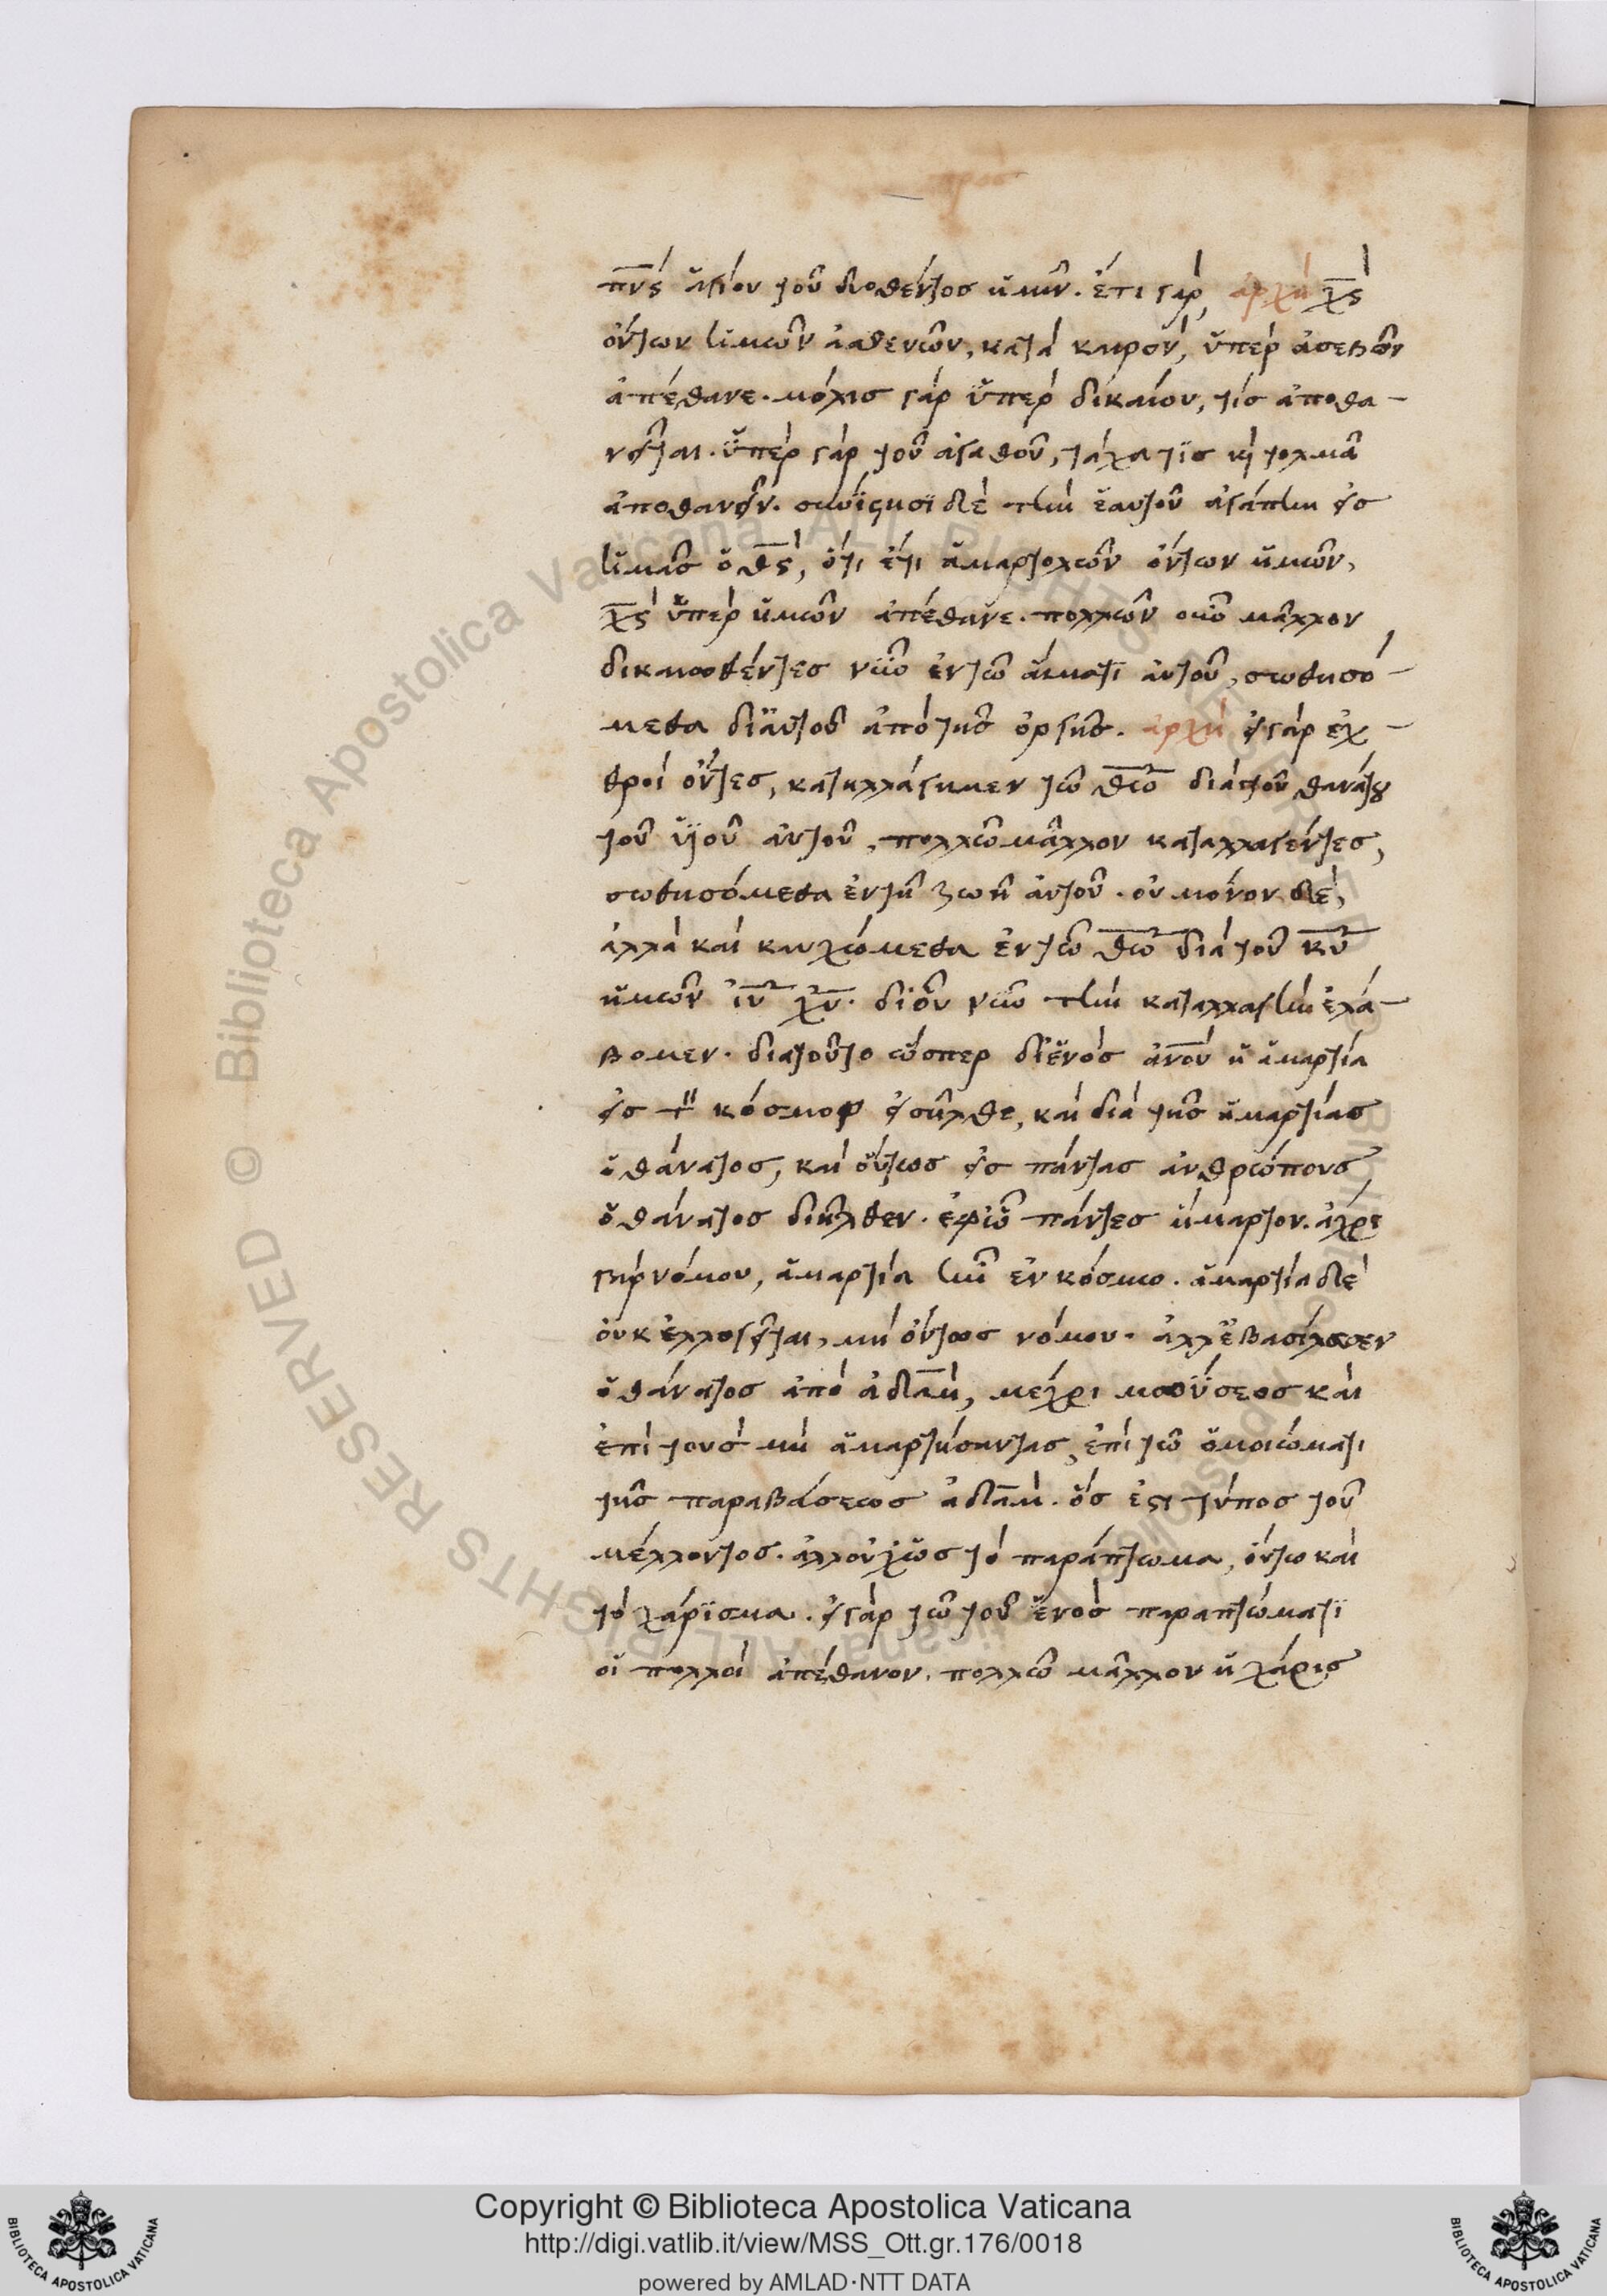 πν̅ς ἁγίου τοῦ δοθέντος ἡμῖν. ἔτι γὰρ, ἀρχὴ χ̅ς
ὄντων ἡμῶν ἀσθενῶν, κατὰ καιρὸν, ὑπὲρ ἀσεβῶν
ἀπέθανε. μόλις γὰρ ὑπὲρ δικαίου, τίς ἀποθα-
νεῖται. ὑπὲρ γὰρ τοῦ ἀγαθοῦ, τάχα τίς κ τολμᾶ
ἀποθανεῖν. συνίστησϊ δὲ τὴν ἑαυτοῦ ἀγάπην εἰς
ἡμᾶς ὁ θ̅ς, ὅτι ἔτι ἁμαρτολῶν ὄντων ἡμῶν,
χ̅ς ὑπὲρ ἡμῶν ἀπέθανε. πολλῶν οὖν μᾶλλον
δικαιωθέντες νῦν ἐν τῶ αἵματϊ αὐτοῦ, σωθησό-
μεθα διἀυτοῦ ἀπὸ τῆς ὀργῆς. ἀρχὴ εἰ γὰρ ἐχ-
θροὶ ὄντες, κατηλλάγημεν τῶ θ̅ῶ διὰ τοῦ θανάτου
τοῦ ὑϊοῦ αὐτοῦ, πολλῶ μᾶλλον καταλλαγέντες,
σωθησόμεθα ἐν τῆ ζωῆ ἀυτοῦ. οὐ μόνον δὲ,
ἀλλὰ καὶ καυχώμεθα ἐν τῶ θ̅ῶ διὰ τοῦ κ̅υ
ἡμῶν ἰ̅υ χ̅υ. δϊοὗ νῦν τὴν καταλλαγὴν ἐλά-
βομεν. διατοῦτο ὥσπερ δϊἑνὸς ἀν̅ου ἡ ἁμαρτία
εἰς τ κόσμον εἰσῆλθε, καὶ διὰ τῆς ἁμαρτίας
ὁ θάνατος, καὶ οὕτως εἰς πάντας ἀνθρώπους
ὁ θάνατος διῆλθεν. ἐφὧ πάντες ἥμαρτον. ἄχρι
γὰρ νόμου, ἁμαρτία ἦν ἐν κόσμω. ἁμαρτία δὲ
ὀυκ ἐλλογεῖται, μὴ ὄντος νόμου. ἀλλἐβασίλευσεν
ὁ θάνατος ἀπὸ ἀδὰμ, μέχρι μοϋσέος καὶ
ἐπὶ τοὺς μὴ ἁμαρτήσαντας, ἐπὶ τῶ ὁμοιώματι
τῆς παραβάσεως ἀδὰμ. ὅς ἐστι τύπος τοῦ
μέλλοντος. ἀλλοὐχὡς τὸ παράπτωμα, οὕτω καὶ
τὸ χάρϊσμα. εἰ γὰρ τῶ τοῦ ἑνὸς παραπτώματϊ
οἱ πολλοὶ ἀπέθανον, πολλῶ μᾶλλον ἡ χάρις
Copyright © Biblioteca Apostolica Vaticana
http://digi.vatlib.it/view/MSS_Ott.gr.176/0018
powered by AMLAD·NTT DATA
BIBLIOTECA APOSTOLICA VATICANA
BIBLIOTECA APOSTOLICA VATICANA